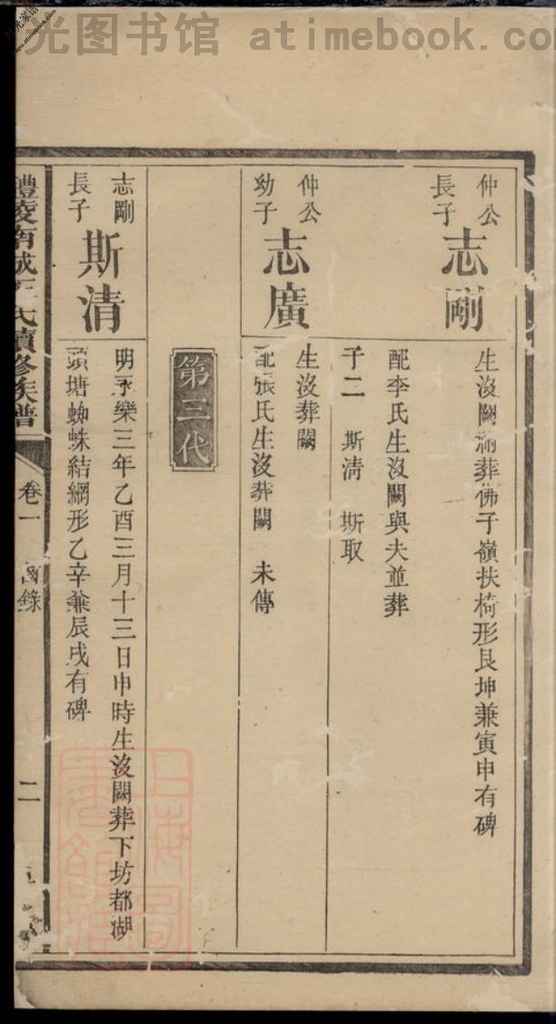 光图书馆 atimebook.co
仲公
長子
志剛
生沒闕  葬佛子嶺扶椅形艮坤兼寅申有碑
配李氏生沒闕與夫並葬
子二 斯清 斯取
仲公
幼子
志廣
生沒葬闕
配張氏生沒葬闕 未傳
第三代
志剛
長子
斯清
明永樂三年乙酉三月十三日申時生沒闕葬下坊都湖
頭塘蜘蛛結網形乙辛兼辰戌有碑
醴陵南城王氏續修族譜
卷一
齒錄
二